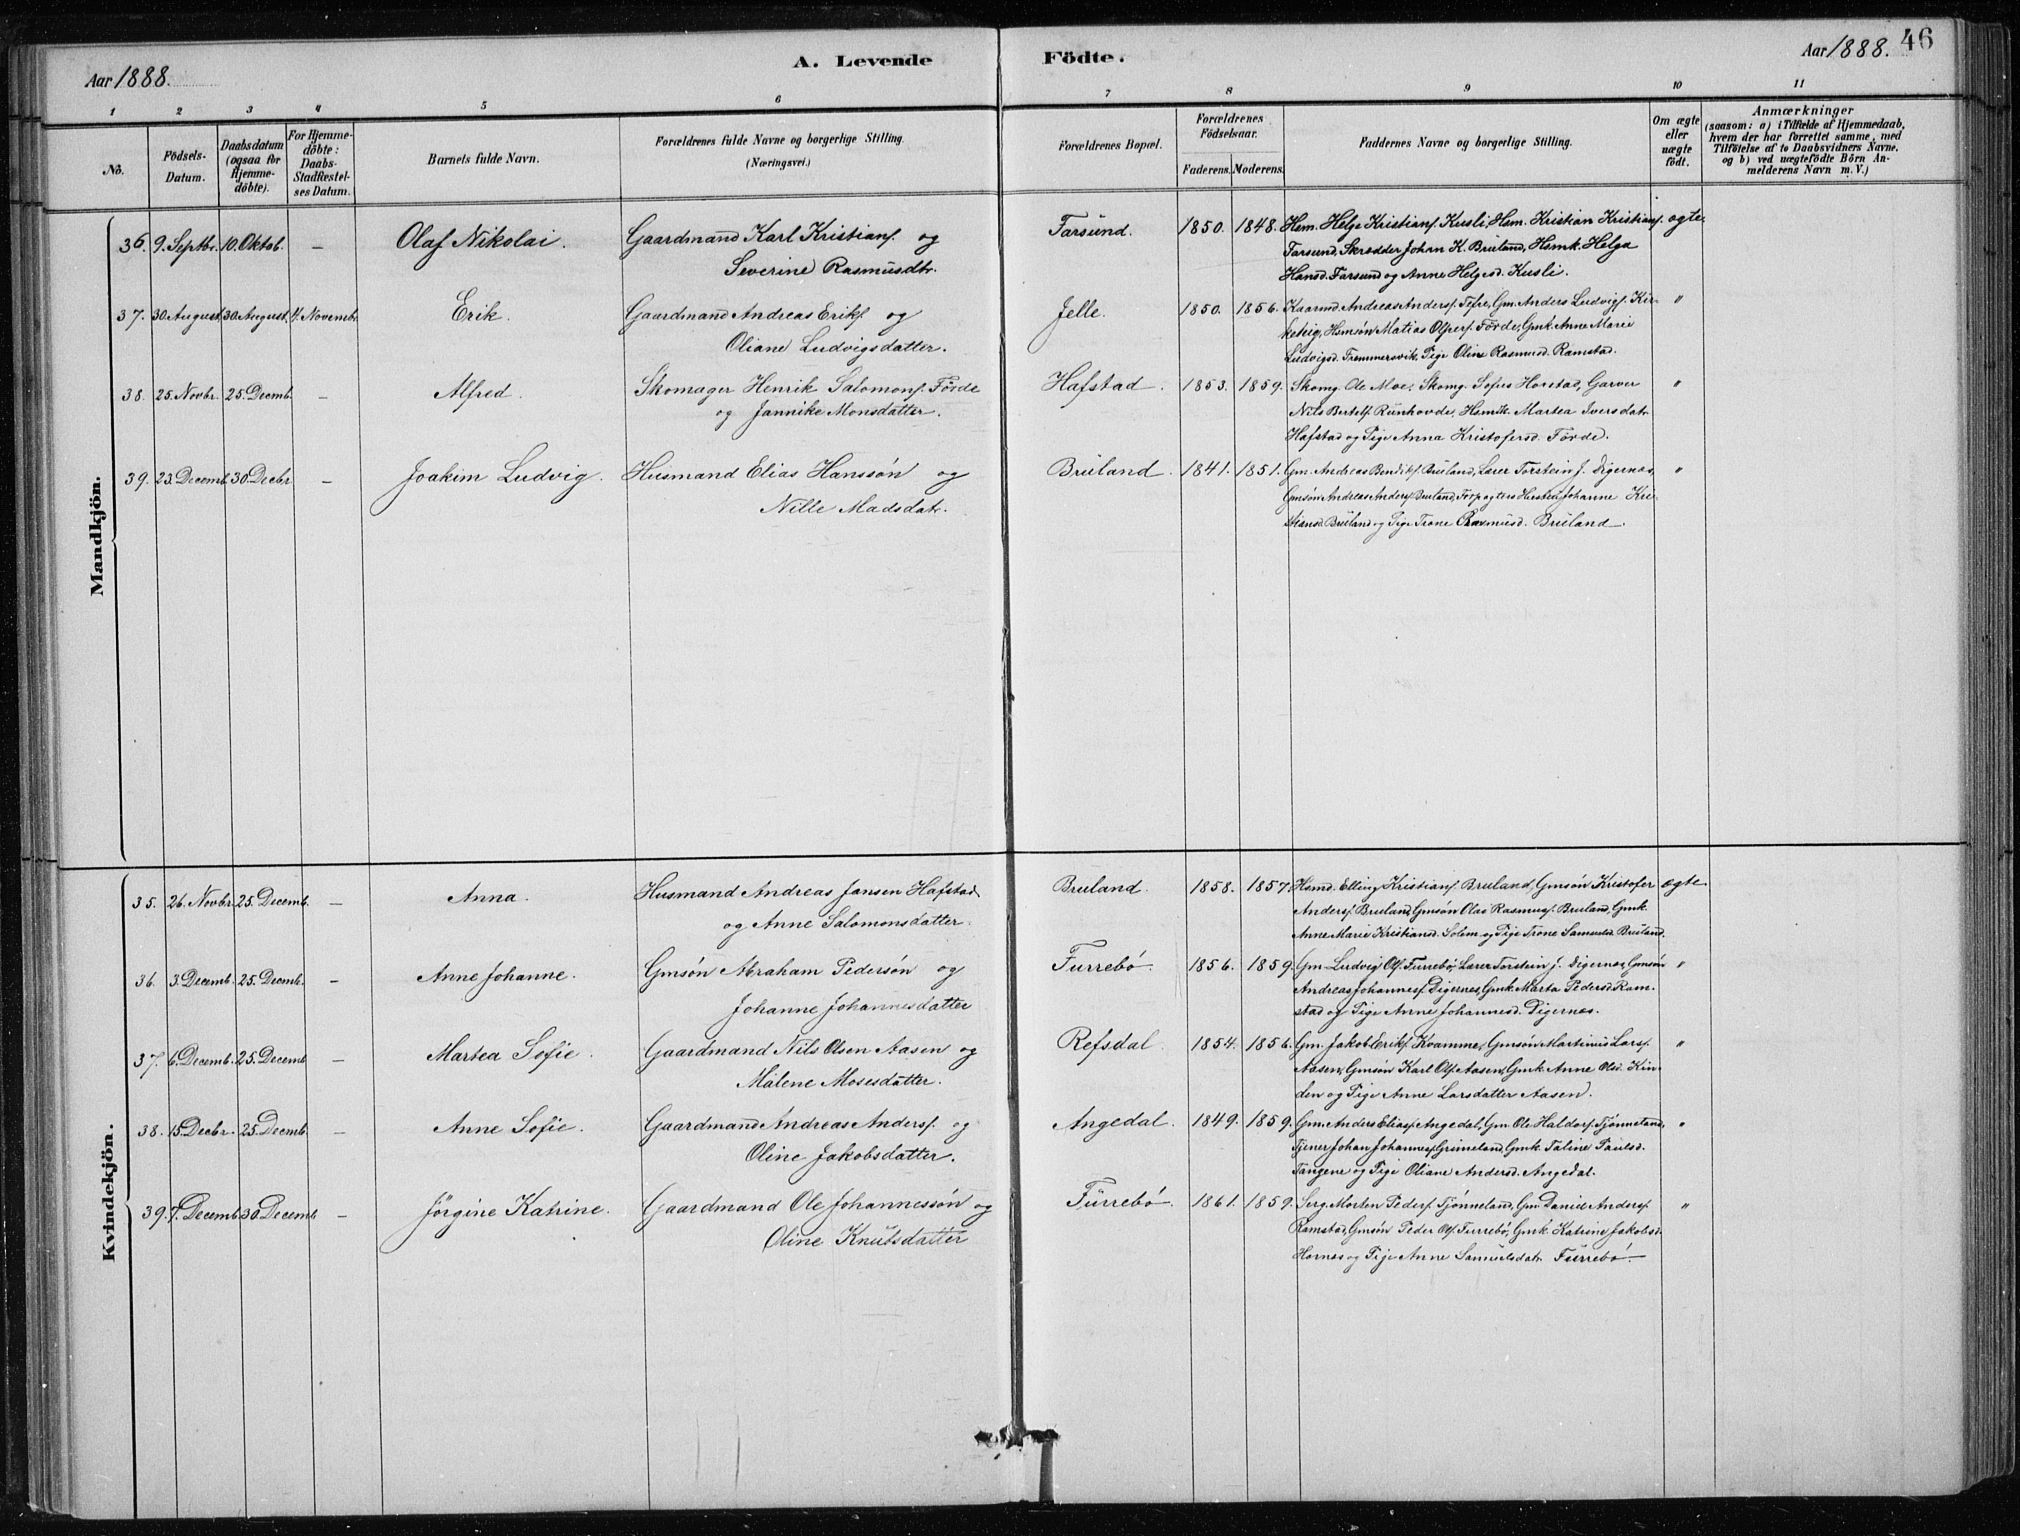 46
Aar 1888.
A. Levende Födte.
Aar 1888.
1 2 3 4 5 6 7 8 9 10 11
No.
Födsels-Datum.
Daabsdatum (ogsaa for Hjemme-döbte).
For Hjemme-döbte: Daabs-Stadfæstel-ses Datum.
Barnets fulde Navn.
Forældrenes fulde Navne og borgerlige Stilling. (Næringsvei.)
Forældrenes Bopæl.
Forældrenes Födselsaar.
Faderens. Moderens.
Faddernes Navne og borgerlige Stilling.
Om ægte eller uægte födt.
Anmærkninger
(saasom: a) i Tilfælde af Hjemmedaab, hvem der har forrettet samme, med Tilföielse af to Daabsvidners Navne, og b) ved uægtefödte Börn Anmelderens Navn m. V.)
Mandkjön.
36. 9. Septbr. 10. Oktob. — Olaf Nikolai. Gaardmand Karl Kristians. og Farsund. 1850. 1848. Hsm. Helge Kristians. Kusli, Hsm. Kristian Kristians. ægte.
Severine Rasmusdtr. Farsund, Skrædder Johan K. Bruland, Hsmk. Helga
Hansd. Farsund og Anne Helgesd. Kusli.
37. 30 August. 30 August. 4. Novembr. Erik. Gaardmand Andreas Eriks. og Jelle. 1850. 1856. Kaarmd Andreas Anders. Tefre, Gm. Anders Ludvigs. Kir- "
Oliane Ludvigsdatter. keteig, Hsmsøn Matias Olpers. Förde, Gmk. Anne Marie
Ludvigsd. Fremmersvik, Pige Oline Rasmusd. Ramstad.
38. 25. Novbr. 25. Decemb. — Alfred. Skomager Henrik Salomons. Förde Hafstad. 1853. 1859. Skomg. Ole Moe, Skomg. Sofus Horstad, Garver "
og Jannike Monsdatter. Nils Bertels. Runhovde, Hsmk. Martea Iversdatr.
Hafstad og Pige Anna Kristofersd. Förde.
39. 23. Decemb. 30. Decbr. — Joakim Ludvig. Husmand Elias Hanssön og Bruland. 1841. 1851. Gm. Andreas Bendiks. Bruland, Lærer Torstein J. Digernes, "
Nille Madsdatr. Gmsön Andreas Anders. Bruland, Forpagters Hustru Johanne Kri-
stiansd. Bruland og Pige Trone Rasmusd. Bruland.
Kvindekjön.
35. 26. Novbr. 25. Decemb. — Anna. Husmand Andreas Jansen Hafstad Bruland. 1858. 1857. Hsmd. Elling Kristians. Bruland, Gmsön Kristofer ægte
og Anne Salomonsdatter. Anders. Bruland, Gmsön Olai Rasmuss. Bruland, Gmk.
Anne Marie Kristiansd. Solem og Pige Trone Samuelsd. Bruland.
36. 3. Decemb. 25. Decemb. — Anne Johanne. Gmsön Abraham Pedersön og Furrebö. 1856. 1859. Gm. Ludvig Ols. Furrebö, Lærer Torstein J. Digernes, Gmsön "
Johanne Johannesdatter Andreas Johanness. Digernes, Gmk. Marta Pedersd. Ram-
stad og Pige Anne Johannesd. Digernes.
37. 6. Decemb. 25. Decemb — Martea Sofie. Gaardmand Nils Olsen Aasen og Refsdal. 1854. 1856. Gm. Jakob Eriks. Kvamme, Gmsön Martinus Lars. "
Malene Mosesdatter. Aasen, Gmsön Karl Ols. Aasen, Gmk. Anne Olsd. Kin-
den og Pige Anne Larsdatter Aasen.
38. 15. Decbr. 25. Decemb. — Anne Sofie. Gaardmand Andreas Anders. og Angedal. 1849. 1859. Gm. Anders Elias. Angedal, Gm. Ole Haldors. Tjönneland, "
Oline Jakobsdatter. Tjener Johan Johannes. Grimeland, Gmk. Taline Paulsd.
Tangene og Pige Oliane Andersd. Angedal.
39. 7. Decemb. 30 Decemb. — Jörgine Katrine. Gaardmand Ole Johannessön og Furrebö. 1861. 1859. Serg. Morten Peders. Tjönneland, Gm. Daniel Anders. "
Oline Knutsdatter Ramstad, Gmsön Peder Ols. Furrebö, Gmk. Katrine Jakobsd.
Hornes og Pige Anne Samuelsdatr. Furrebö.